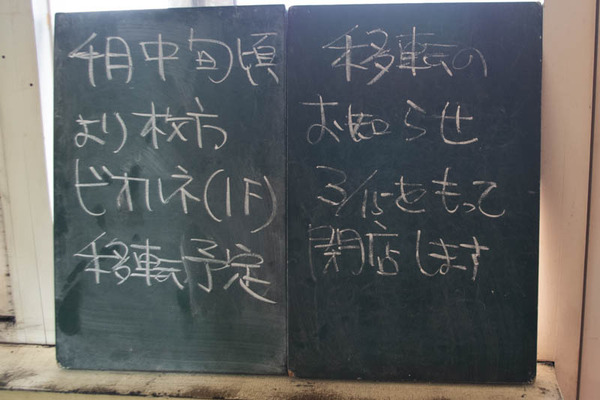 移転の
お知らせ
3/15をもって
閉店します
4月中旬頃
より枚方
ビオルネ(1F)
移転予定